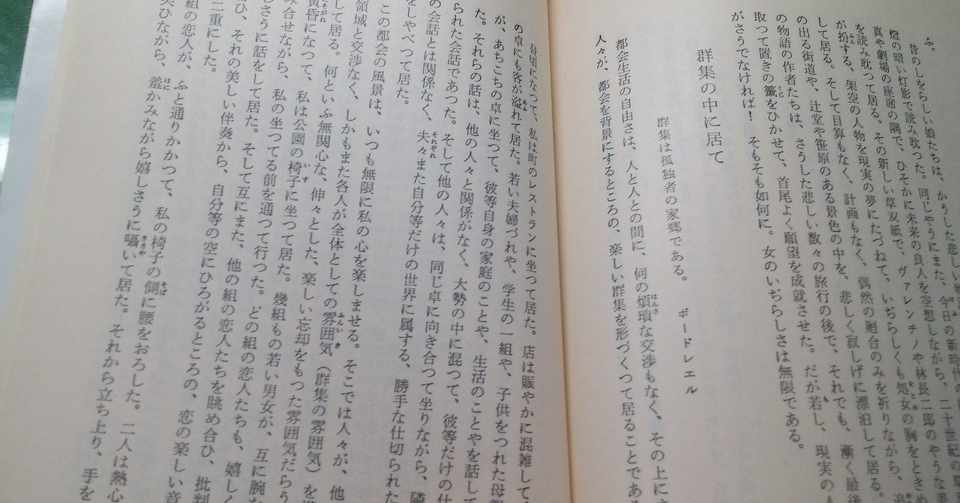 ふ。
昔のしをらしい娘たちは、かうした悲しい
燈の暗い灯影で読み耽つた。同じやうにまた、今日の新時代の
真や劇場の座廊の隅で、ひそかに未来の良人を空想しながら、二十世紀の
を読み耽つて居る。その新しい草双紙で、ヴァレンチノや林長二郎のやうな
が扮する、架空の人物を現実の夢にたづねて、いぢらしくも処女の胸をときめ
して居る。そして目算もなく、計画もなく、偶然の廻合のみを祈りながら、
の出る街道や、辻堂や笹原のある景色の中を、悲しく寂しげに漂泊して居る
の物語の作者たちは、さうした悲しい数々の旅行の後で、それでも、漸く最
取つて置きの籤をひかせて、首尾よく願望を成就させた。だが若し、現実の
がさうでなければ！　そもそも如何に。女のいぢらしさは無限である。
群集の中に居て
群集は孤独者の家郷である。　ボードレエル
都会生活の自由さは、人と人との間に、何の煩瑣な交渉もなく、その上に
人々が、都会を背景にするところの、楽しい群集を形づくつて居ることであ
昼頃になつて、私は町のレストランに坐つて居た。店は賑やかに混雑して
の卓にも客が溢れて居た。若い夫婦づれや、学生の一組や、子供をつれた母親
が、あちこちの卓に坐つて、彼等自身の家庭のことや、生活のことやを話して
た。それらの話は、他の人々と関係がなく、大勢の中に混つて、彼等だけの仕
られた会話であつた。そして他の人々は、同じ卓に向き合つて坐りながら、隣
の会話とは関係なく、夫々また自分等だけの世界に属する、勝手な仕切られた
をしやべつて居た。
この都会の風景は、いつも無限に私の心を楽しませる。そこでは人々が、他
領域と交渉なく、しかもまた各人が全体としての雰囲気（群集の雰囲気）を
して居る。何といふ無関心な、伸々とした、楽しい忘却をもつた雰囲気だらう
黄昏になつて、私は公園の椅子に坐つて居た。幾組もの若い男女が、互に腕を
み合せながら、私の坐つてる前を通つて行つた。どの組の恋人たちも、嬉しく
しさうに話をして居た。そして互にまた、他の組の恋人たちを眺め合ひ、批判
ひ、それの美しい伴奏から、自分等の空にひろがるところの、恋の楽しい音
二重にした。
組の恋人が、ふと通りかかつて、私の椅子の側に腰をおろした。二人は熱心
笑ひながら、羞かみながら嬉しさうに囁いて居た。それから立ち上り、手を